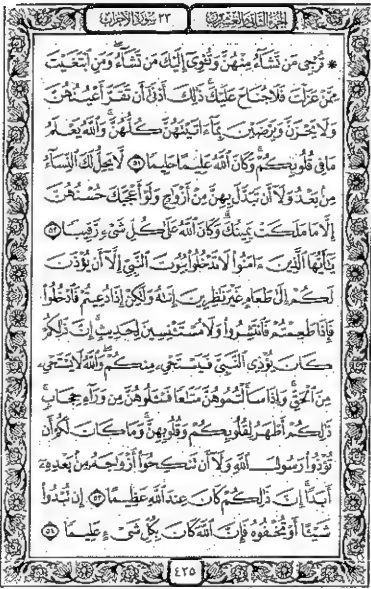 الجزء الثاني والعشرون
٣٣ سورة الأحزاب
* تُرْجِى مَن تَشَآءُ مِنْهُنَّ وَتُـْٔوِىٓ إِلَيْكَ مَن تَشَآءُ وَمَنِ ٱبْتَغَيْتَ
مِمَّنْ عَزَلْتَ فَلَا جُنَاحَ عَلَيْكَ ذَٰلِكَ أَدْنَىٰٓ أَن تَقَرَّ أَعْيُنُهُنَّ
وَلَا يَحْزَنَّ وَيَرْضَيْنَ بِمَآ ءَاتَيْتَهُنَّ كُلُّهُنَّ وَٱللَّهُ يَعْلَمُ
مَا فِى قُلُوبِكُمْ وَكَانَ ٱللَّهُ عَلِيمًا حَلِيمًا ٥١ لَّا يَحِلُّ لَكَ ٱلنِّسَآءُ
مِنۢ بَعْدُ وَلَآ أَن تَبَدَّلَ بِهِنَّ مِنْ أَزْوَٰجٍ وَلَوْ أَعْجَبَكَ حُسْنُهُنَّ
إِلَّا مَا مَلَكَتْ يَمِينُكَ وَكَانَ ٱللَّهُ عَلَىٰ كُلِّ شَىْءٍ رَّقِيبًا ٥٢
يَٰٓأَيُّهَا ٱلَّذِينَ ءَامَنُوا۟ لَا تَدْخُلُوا۟ بُيُوتَ ٱلنَّبِىِّ إِلَّآ أَن يُؤْذَنَ
لَكُمْ إِلَىٰ طَعَامٍ غَيْرَ نَٰظِرِينَ إِنَىٰهُ وَلَٰكِنْ إِذَا دُعِيتُمْ فَٱدْخُلُوا۟
فَإِذَا طَعِمْتُمْ فَٱنتَشِرُوا۟ وَلَا مُسْتَـْٔنِسِينَ لِحَدِيثٍ إِنَّ ذَٰلِكُمْ
كَانَ يُؤْذِى ٱلنَّبِىَّ فَيَسْتَحْىِۦ مِنكُمْ وَٱللَّهُ لَا يَسْتَحْىِۦ
مِنَ ٱلْحَقِّ وَإِذَا سَأَلْتُمُوهُنَّ مَتَٰعًا فَسْـَٔلُوهُنَّ مِن وَرَآءِ حِجَابٍ
ذَٰلِكُمْ أَطْهَرُ لِقُلُوبِكُمْ وَقُلُوبِهِنَّ وَمَا كَانَ لَكُمْ أَن
تُؤْذُوا۟ رَسُولَ ٱللَّهِ وَلَآ أَن تَنكِحُوٓا۟ أَزْوَٰجَهُۥ مِنۢ بَعْدِهِۦٓ
أَبَدًا إِنَّ ذَٰلِكُمْ كَانَ عِندَ ٱللَّهِ عَظِيمًا ٥٣ إِن تُبْدُوا۟
شَيْـًٔا أَوْ تُخْفُوهُ فَإِنَّ ٱللَّهَ كَانَ بِكُلِّ شَىْءٍ عَلِيمًا ٥٤
٤٢٥